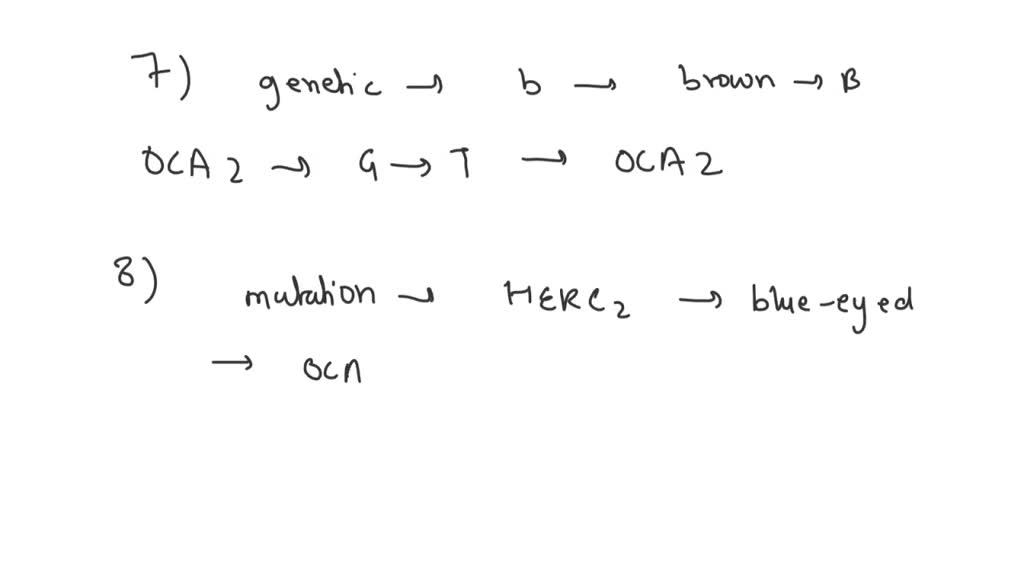 7) genetic → b → brown → B
OCA2 → G → T → OCA2
8) mutation → HERC2 → blue-eyed
→ OCA